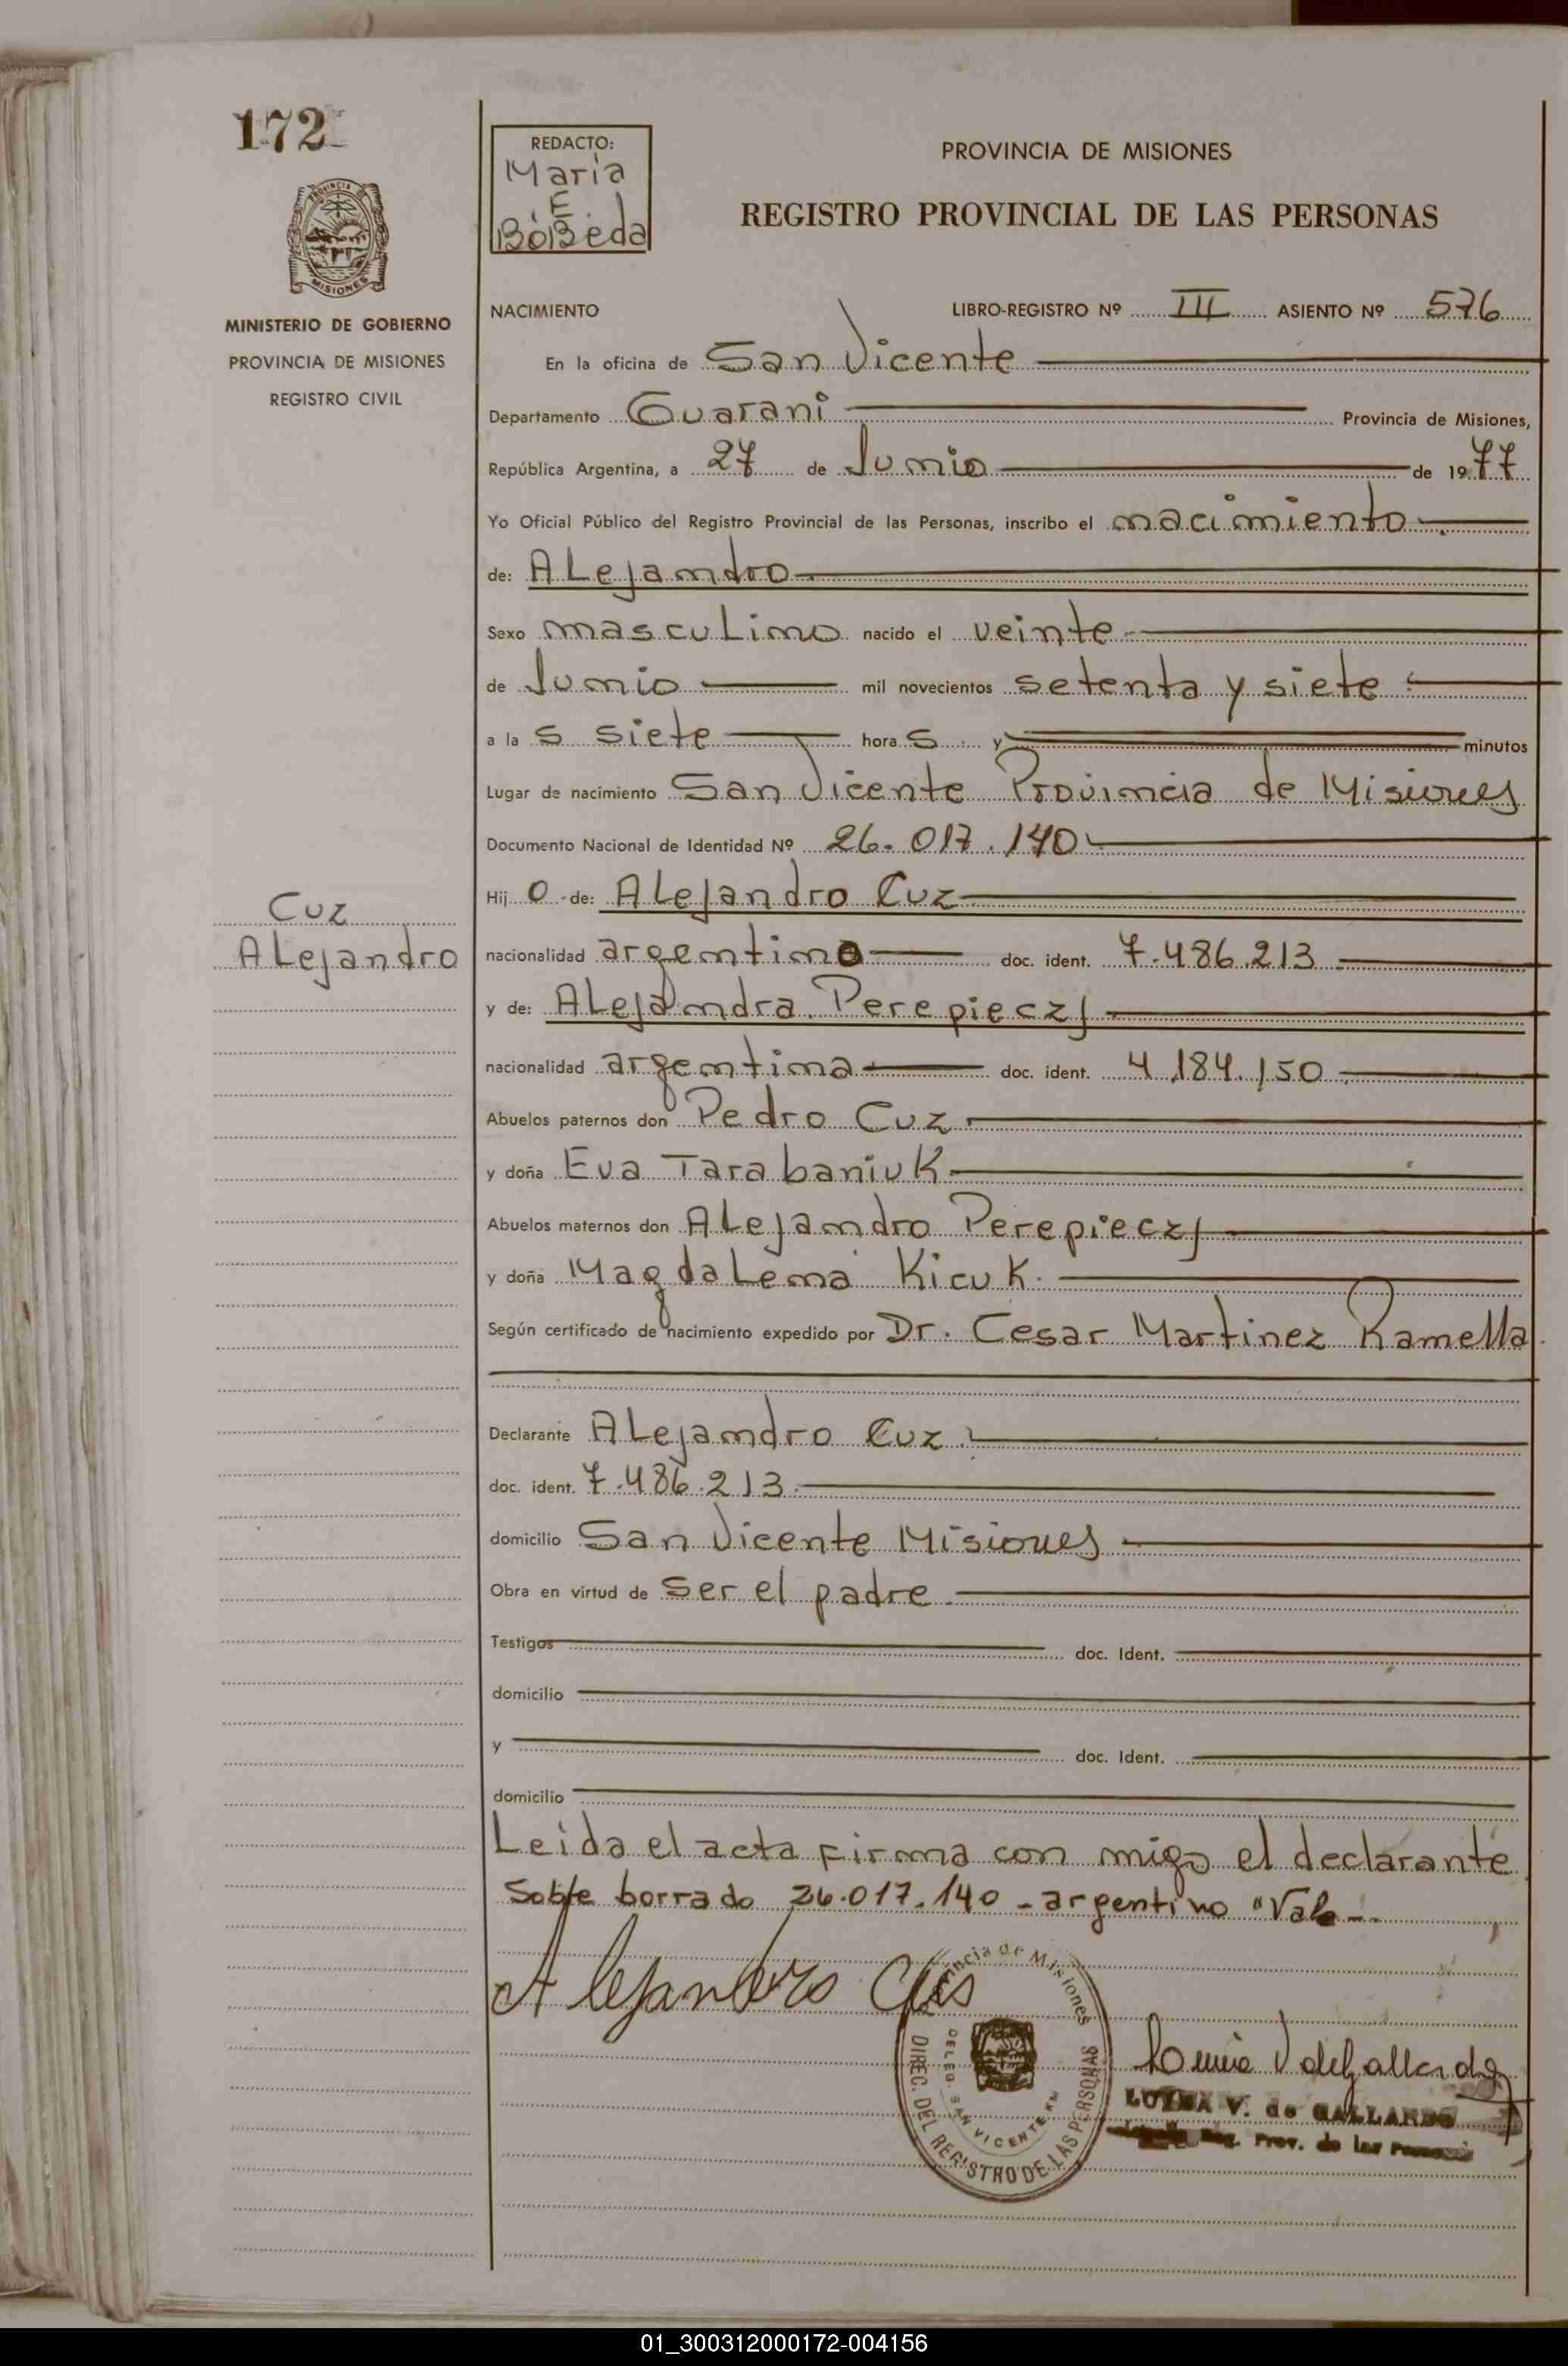 172
REDACTO:
Maria
E.
BoBeda
PROVINCIA DE MISIONES
REGISTRO PROVINCIAL DE LAS PERSONAS
PROVINCIA DE
MISIONES
MINISTERIO DE GOBIERNO
PROVINCIA DE MISIONES
REGISTRO CIVIL
NACIMIENTO LIBRO-REGISTRO Nº III ASIENTO Nº 576
En la oficina de San Vicente
Departamento Guarani Provincia de Misiones,
República Argentina, a 27 de Junio de 1977
Yo Oficial Público del Registro Provincial de las Personas, inscribo el nacimiento
de: ALejandro
Sexo mascuLino nacido el veinte
de Junio mil novecientos setenta y siete
a la s siete hora s y minutos
Lugar de nacimiento San Vicente Provincia de Misiones
Documento Nacional de Identidad Nº 26.017.140
Hij o de: ALejandro Cuz
Cuz
ALejandro
nacionalidad argentino doc. ident. 7.486.213
y de: ALejandra Perepieczj
nacionalidad argentina doc. ident. 4.184.150
Abuelos paternos don Pedro Cuz
y doña Eva Tarabaniuk
Abuelos maternos don ALejandro Perepieczj
y doña MagdaLena Kicuk.
Según certificado de nacimiento expedido por Dr. Cesar Martinez Ramella
Declarante ALejandro Cuz
doc. ident. 7.486.213
domicilio San Vicente Misiones
Obra en virtud de ser el padre
Testigos doc. Ident.
domicilio
y doc. Ident.
domicilio
Leida el acta firma con migo el declarante
Sobre borrado 26.017.140 - argentino "Vale-
Alejandro
Provincia de Misiones
DIREC. DEL REGISTRO DE LAS PERSONAS
DELEG. SAN VICENTE
V de Gallardo
LUISA V. de GALLARDO
Reg. Prov. de las Personas
01_300312000172-004156